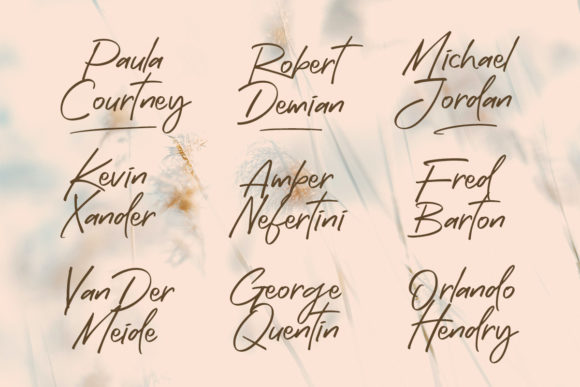 Paula
Courtney
Robert
Demian
Michael
Jordan
Kevin
Xander
Amber
Nefertini
Fred
Barton
Van Der
Meide
George
Quentin
Orlando
Hendry